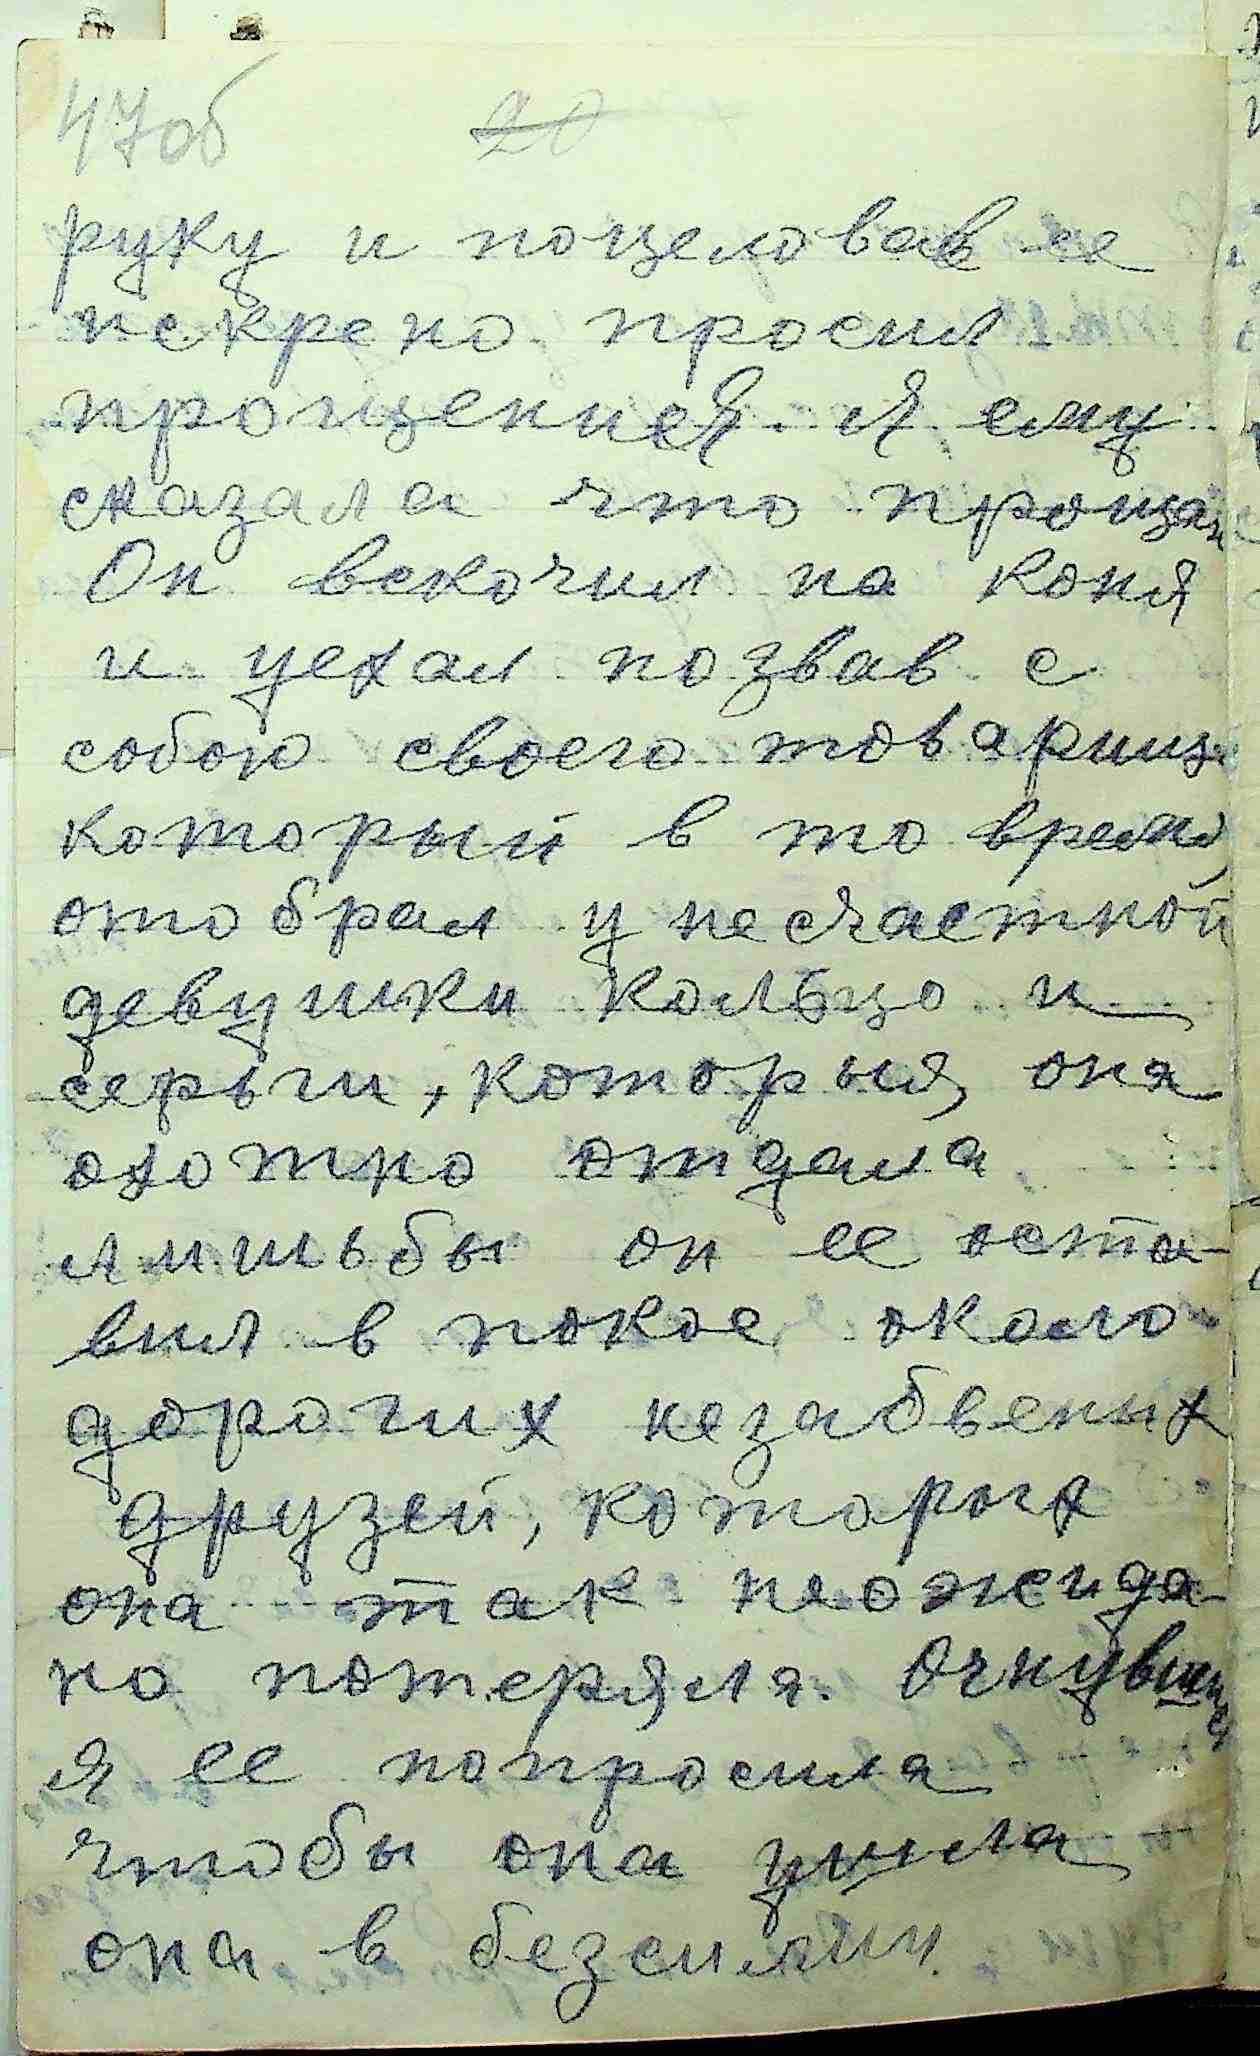 47об 20
руку и поцеловав ее
искрено просил
прощения. Я ему
сказала что прощаю
Он вскочил на коня
и уехал позвав с
собою своего товарища
который в то время
отобрал у несчастной
девушки кольцо и
серьги, которыя она
охотно отдала
лишьбы он ее оста-
вил в покое около
дорогих незабвеных
друзей, которых
она так неожида-
но потеряла. Очнувшись
я ее попросила
чтобы она ушла
она в безсилии